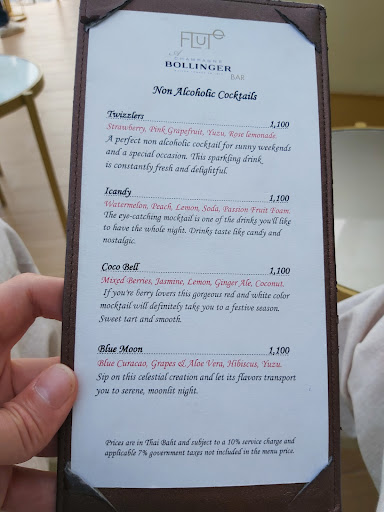 FLUTe
A
CHAMPAGNE
BOLLINGER
BAR
Non Alcoholic Cocktails
Twizzlers 1,100
Strawberry, Pink Grapefruit, Yuzu, Rose lemonade.
A perfect non alcoholic cocktail for sunny weekends
and a special occasion. This sparkling drink
is constantly fresh and delightful.
Icandy 1,100
Watermelon, Peach, Lemon, Soda, Passion Fruit Foam.
The eye-catching mocktail is one of the drinks you'll like
to have the whole night. Drinks taste like candy and
nostalgic.
Coco Bell 1,100
Mixed Berries, Jasmine, Lemon, Ginger Ale, Coconut.
If you're berry lovers this gorgeous red and white color
mocktail will definitely take you to a festive season.
Sweet tart and smooth.
Blue Moon 1,100
Blue Curacao, Grapes & Aloe Vera, Hibiscus, Yuzu.
Sip on this celestial creation and let its flavors transport
you to serene, moonlit night.
Prices are in Thai Baht and subject to a 10% service charge and
applicable 7% government taxes not included in the menu price.